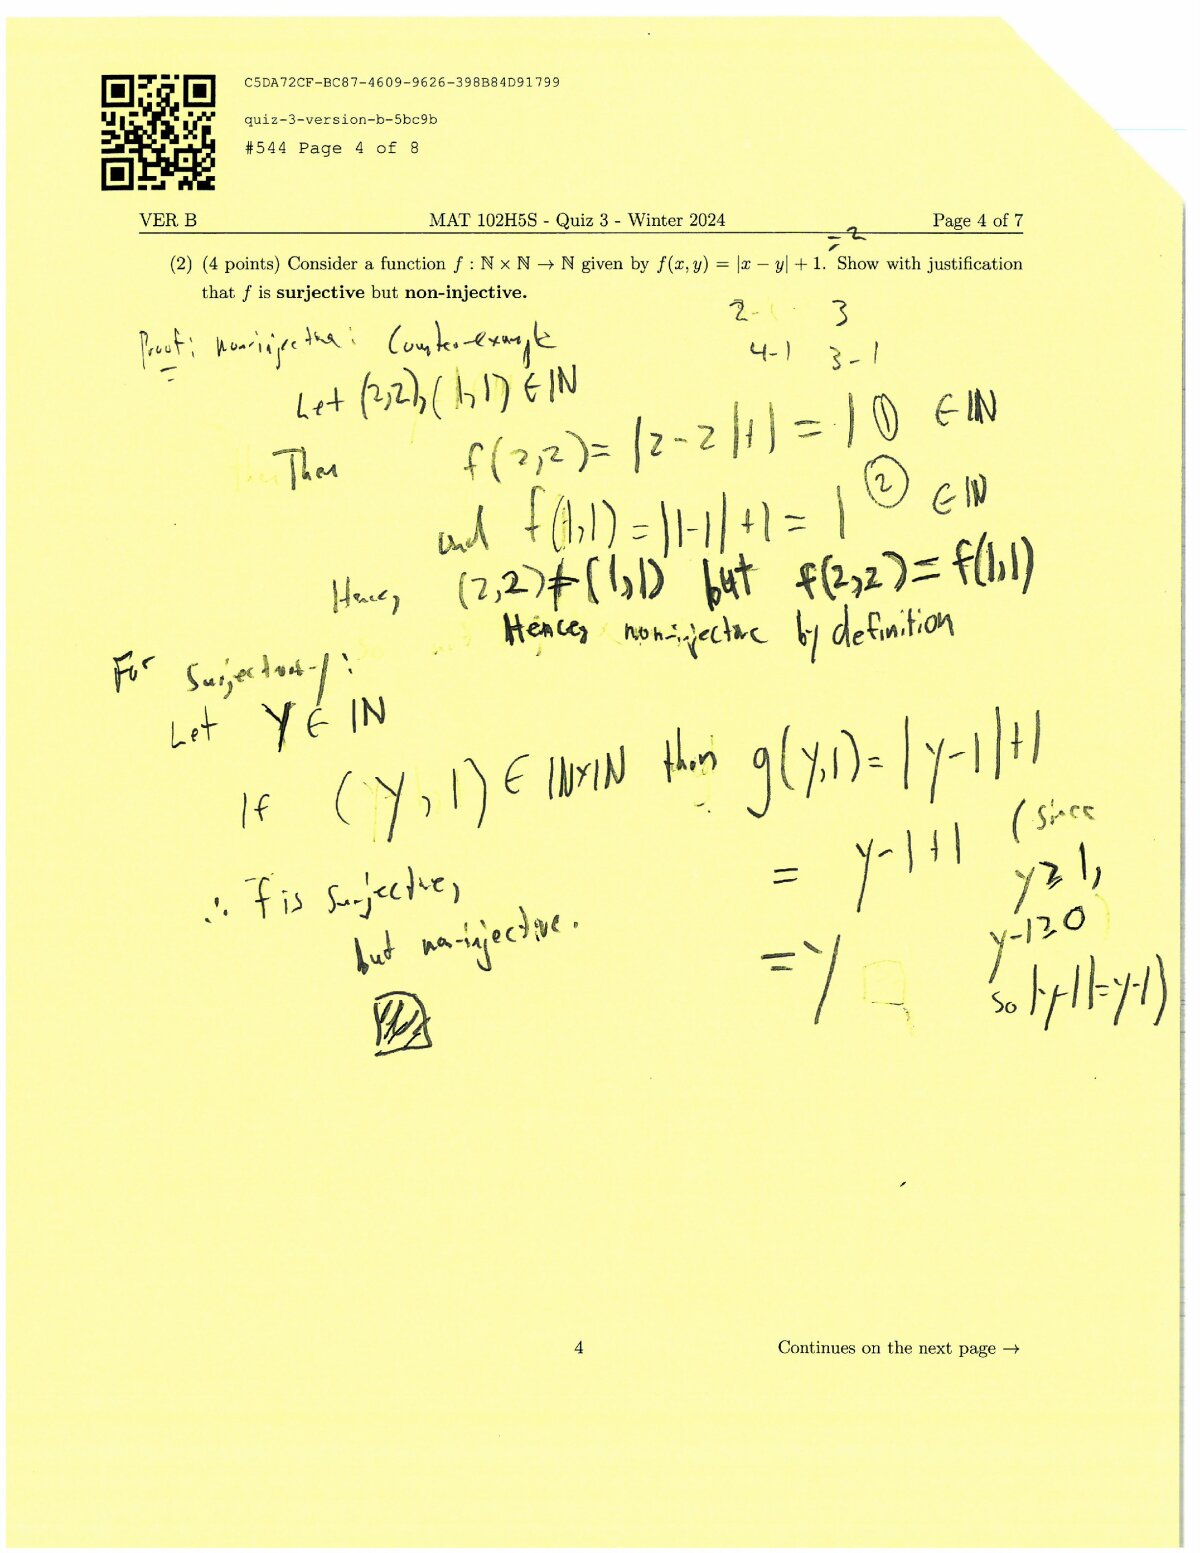 C5DA72CF-BC87-4609-9626-398B84D91799
quiz-3-version-b-5bc9b
#544 Page 4 of 8
VER B MAT 102H5S - Quiz 3 - Winter 2024 Page 4 of 7
= 2
(2) (4 points) Consider a function f : ℕ × ℕ → ℕ given by f(x, y) = |x − y| + 1. Show with justification
that f is surjective but non-injective.
2- 3
4-1 3-1
Proof: non-injective: Counter-example
Let (2,2), (1,1) ∈ ℕ
Then f(2,2) = |2-2|+1 = 1 ① ∈ ℕ
and f(1,1) = |1-1|+1 = 1 ② ∈ ℕ
Hence, (2,2) ≠ (1,1) but f(2,2) = f(1,1)
Hence, non-injective by definition
For surjectivity:
Let y ∈ ℕ
If (y, 1) ∈ ℕ×ℕ then g(y,1) = |y-1|+1
= y-1+1 (since
y ≥ 1,
y-1 ≥ 0
so |y-1| = y-1)
= y
∴ f is surjective,
but non-injective.
4 Continues on the next page →